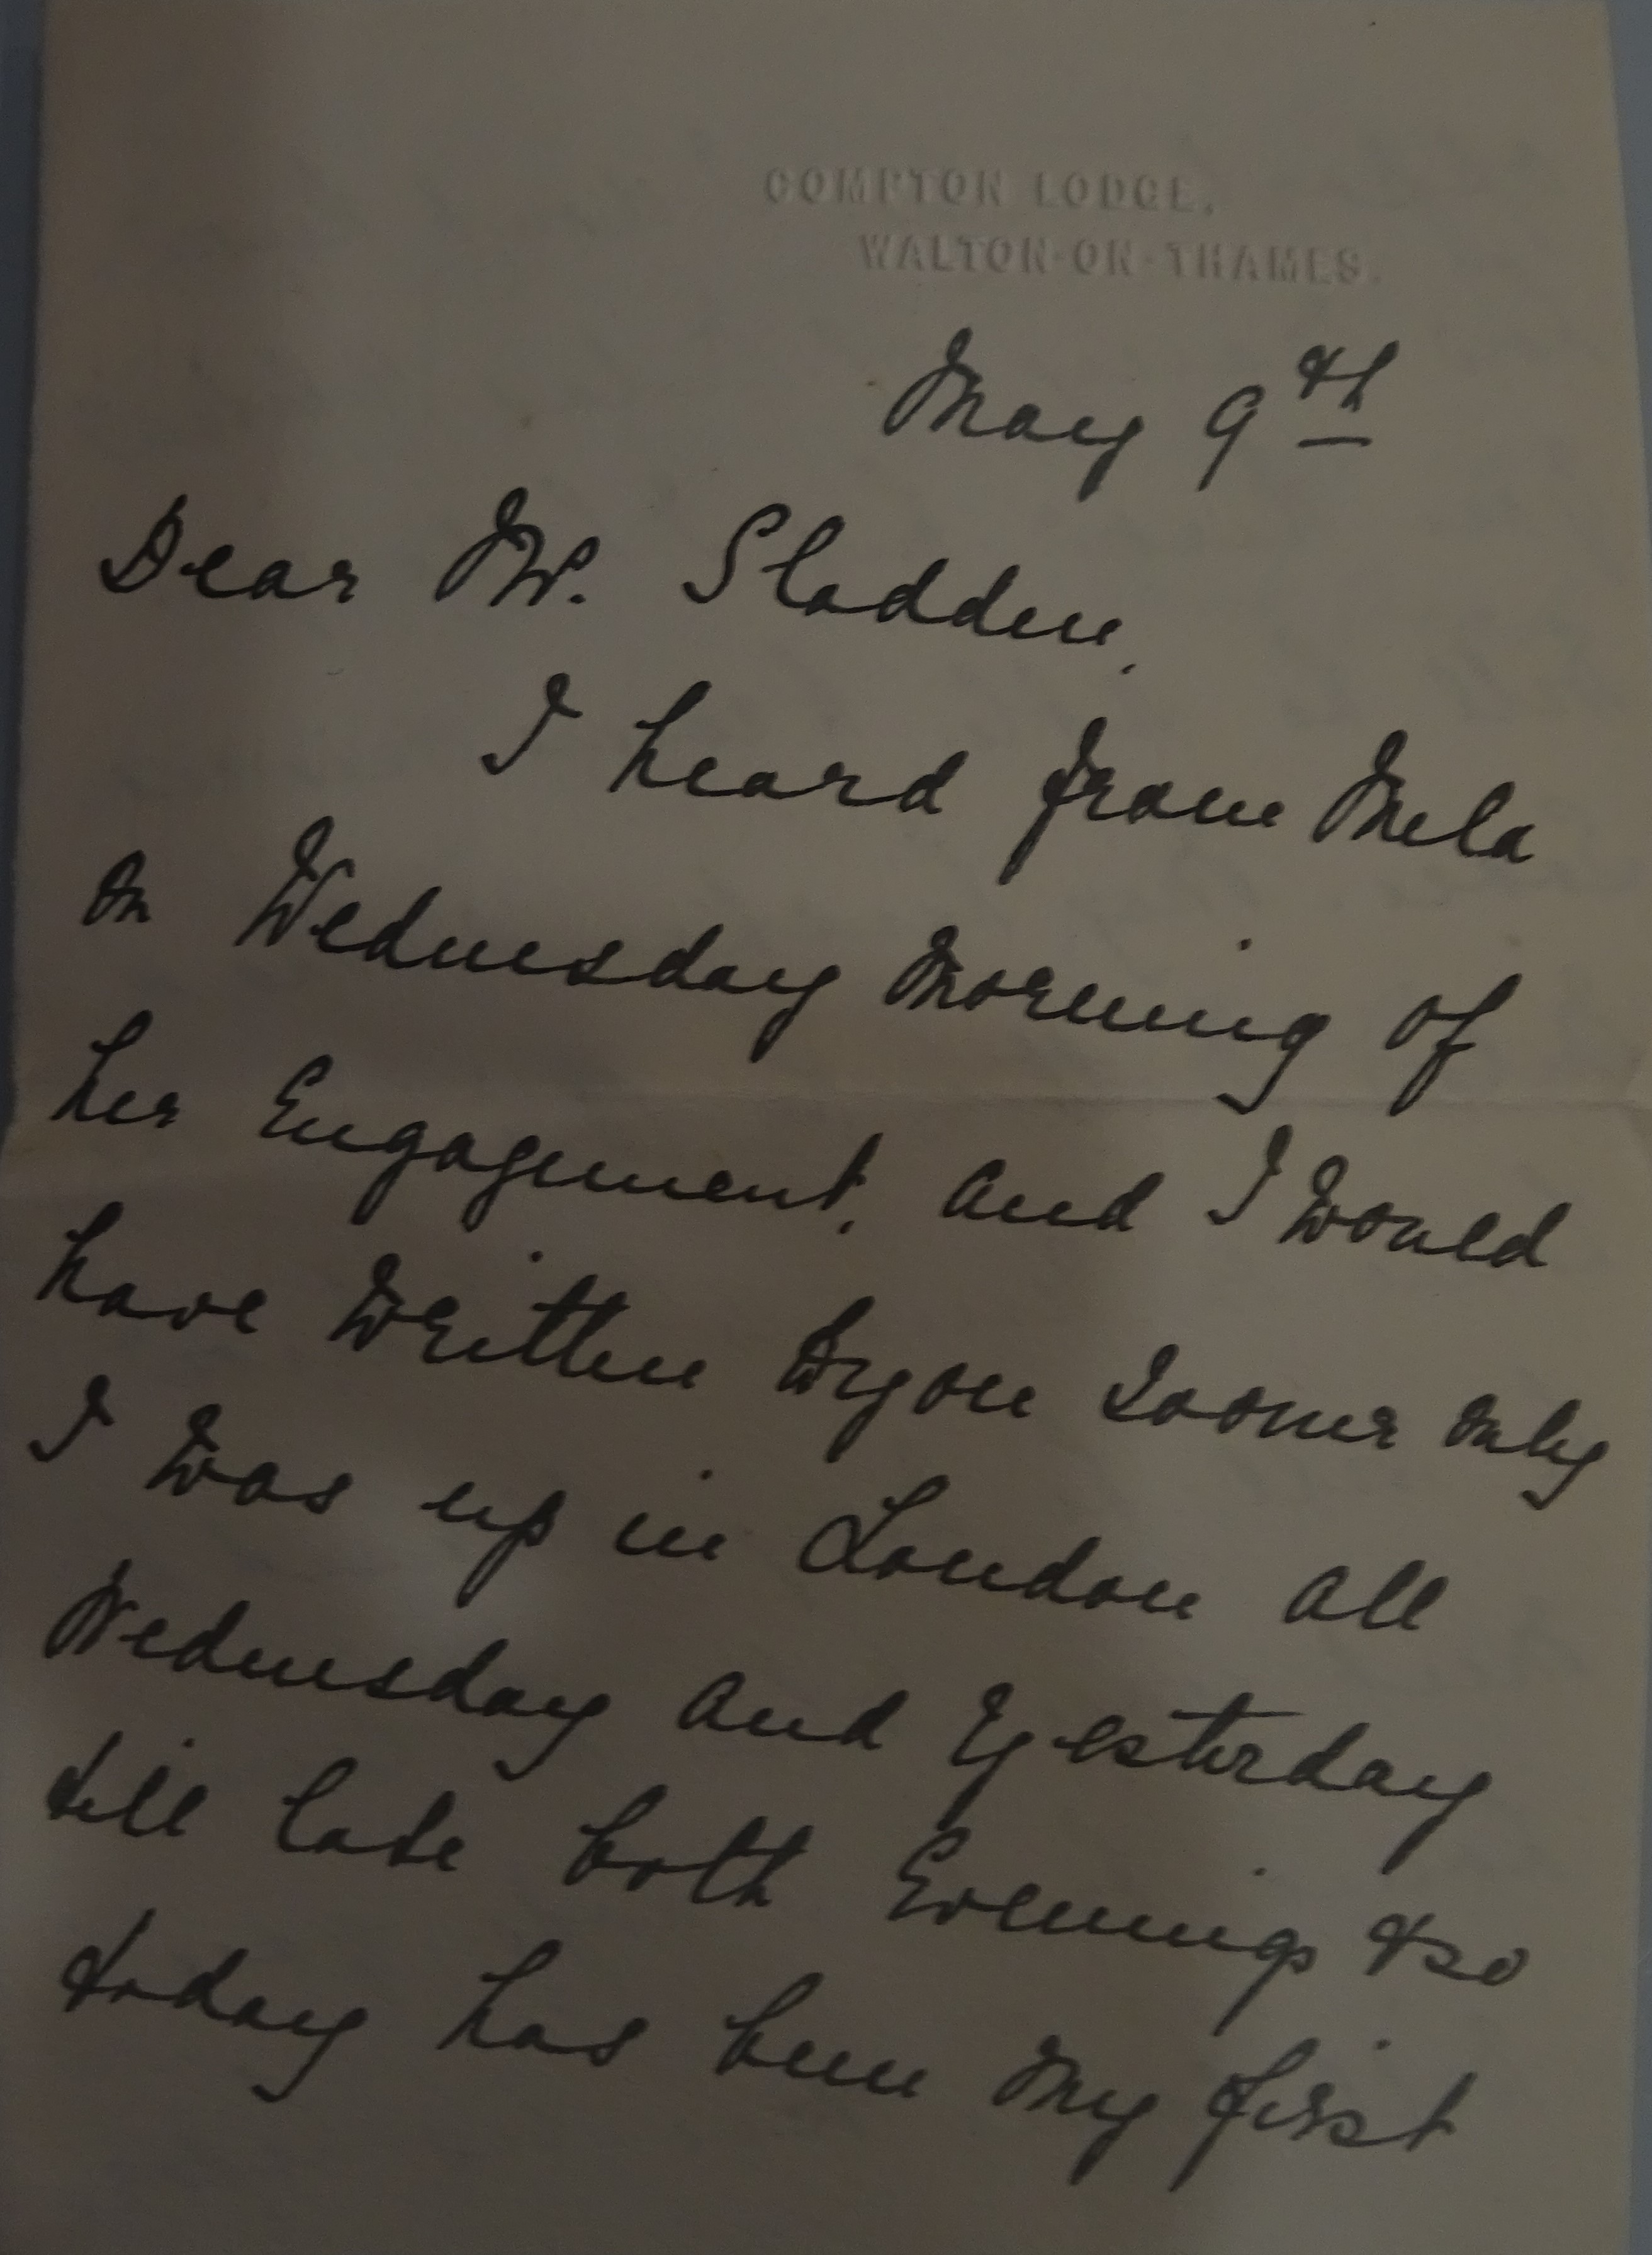 COMPTON LODGE,
WALTON-ON-THAMES.
May 9th
Dear Mr. Sladden,
I heard from Mela
on Wednesday morning of
her Engagement, and I would
have written to you sooner only
I was up in London all
Wednesday and Yesterday
till late both Evenings & so
today has been my first